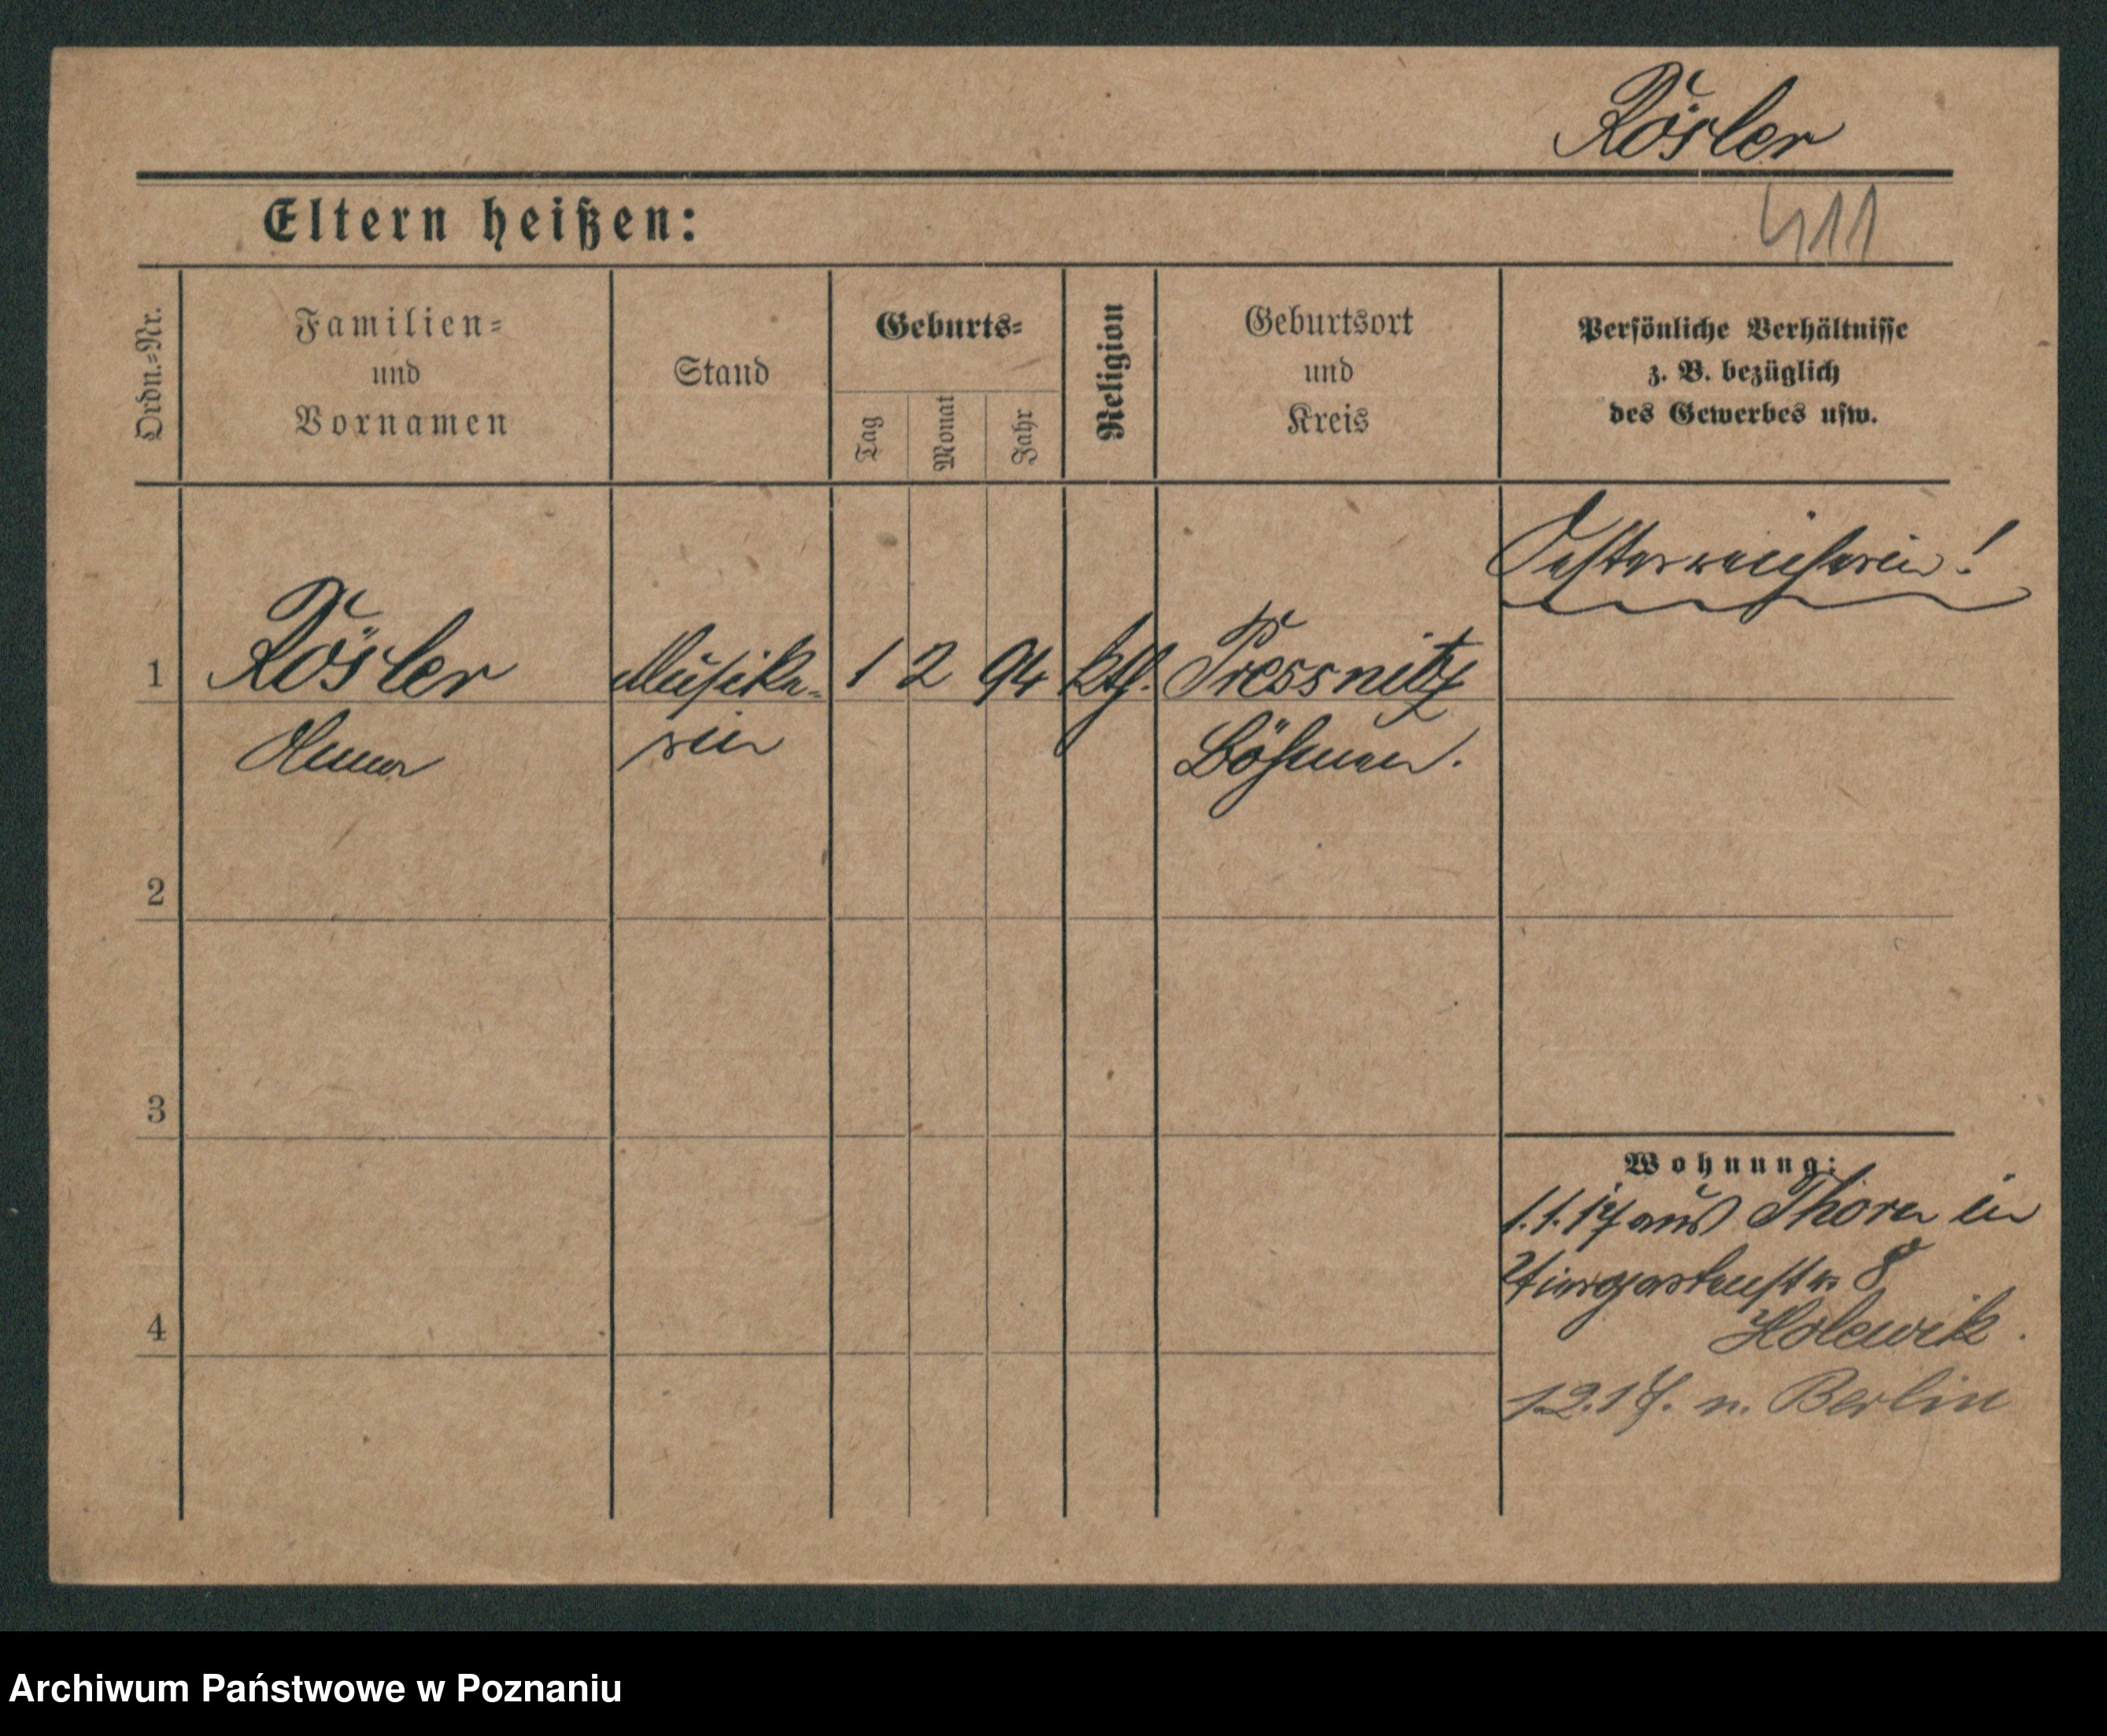 Rösler
Eltern heißen:
411
Ordn.-Nr.
Familien-
und
Vornamen
Stand
Geburts-
Tag
Monat
Jahr
Religion
Geburtsort
und
Kreis
Persönliche Verhältnisse
z. B. bezüglich
des Gewerbes usw.
Oesterreicherin!
1 Rösler Musike- 1 2 94 kth. Pressnitz
Anna rin Böhmen.
2
3
Wohnung:
1.1.17 aus Thorn in
Tiergartenstr 8
4
Holewik.
1.2.17. n. Berlin
Archiwum Państwowe w Poznaniu